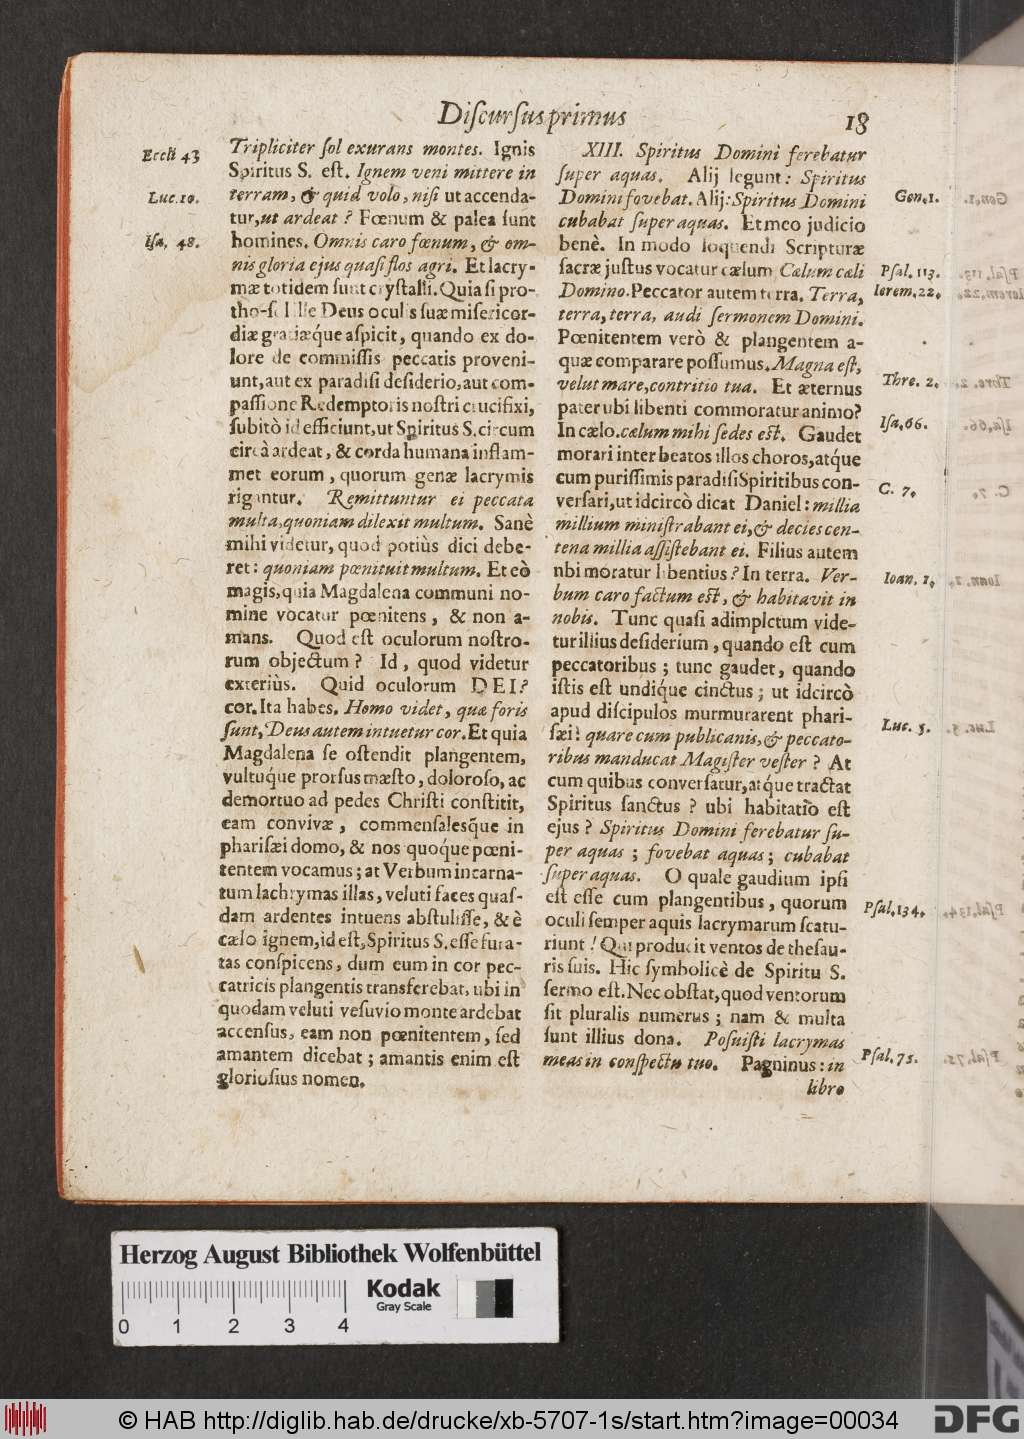 Discursus primus
18
Eccli 43
Tripliciter ſol exurans montes. Ignis
Spiritus S. eſt. Ignem veni mittere in
Luc. 10.
terram, & quid volo, niſi ut accenda-
tur, ut ardeat ? Fœnum & palea ſunt
Iſa, 48.
homines. Omnis caro fœnum, & om-
nis gloria ejus quaſi flos agri. Et lacry-
mæ totidem ſunt cryſtalli. Quia ſi pro-
Deus oculis ſuæ miſericor-
diæ gratiæque aſpicit, quando ex do-
lore de commiſſis peccatis proveni-
unt, aut ex paradiſi deſiderio, aut com-
paſſione Redemptoris noſtri crucifixi,
ſubitò id efficiunt, ut Spiritus S. circum
circà ardeat, & corda humana inflam-
met eorum, quorum genæ lacrymis
rigantur. Remittuntur ei peccata
multa, quoniam dilexit multum. Sanè
mihi videtur, quod potiùs dici debe-
ret: quoniam pœnituit multum. Et eò
magis, quia Magdalena communi no-
mine vocatur pœnitens, & non a-
mans. Quod eſt oculorum noſtro-
rum objectum ? Id, quod videtur
exteriùs. Quid oculorum DEI?
cor. Ita habes. Homo videt, quæ foris
ſunt, Deus autem intuetur cor. Et quia
Magdalena ſe oſtendit plangentem,
vultuq́ue prorſus mæſto, doloroſo, ac
demortuo ad pedes Chriſti conſtitit,
eam convivæ, commenſalesq̃ue in
phariſæi domo, & nos quoq́ue pœni-
tentem vocamus; at Verbum incarna-
tum lachrymas illas, veluti faces quaſ-
dam ardentes intuens abſtuliſſe, & è
cælo ignem, id eſt, Spiritus S. eſſe fura-
tas conſpicens, dum eum in cor pec-
catricis plangentis transferebat, ubi in
quodam veluti veſuvio monte ardebat
accenſus, eam non pœnitentem, ſed
amantem dicebat; amantis enim eſt
glorioſius nomen.
XIII. Spiritus Domini ferebatur
ſuper aquas. Alij legunt: Spiritus
Gen. 1.
Domini fovebat. Alij: Spiritus Domini
cubabat ſuper aquas. Et meo judicio
benè. In modo loquendi Scripturæ
Pſal. 113.
ſacræ juſtus vocatur cælum Cælum cæli
Ierem. 22.
Domino. Peccator autem terra. Terra,
terra, terra, audi ſermonem Domini.
Pœnitentem verò & plangentem a-
quæ comparare poſſumus. Magna eſt,
Thre. 2.
velut mare, contritio tua. Et æternus
pater ubi libenti commoratur animo?
Iſa. 66.
In cælo. cælum mihi ſedes eſt. Gaudet
morari inter beatos illos choros, atq́ue
cum puriſſimis paradiſi Spiritibus con-
C. 7.
verſari, ut idcircò dicat Daniel: millia
millium miniſtrabant ei, & decies cen-
tena millia aſſiſtebant ei. Filius autem
Ioan. 1.
nbi moratur libentius? In terra. Ver-
bum caro factum eſt, & habitavit in
nobis. Tunc quaſi adimpletum vide-
tur illius deſiderium, quando eſt cum
peccatoribus; tunc gaudet, quando
iſtis eſt undiq́ue cinctus; ut idcircò
apud diſcipulos murmurarent phari-
Luc. 5.
ſæi: quare cum publicanis, & peccato-
ribus manducat Magiſter veſter ? At
cum quibus converſatur, atq́ue tractat
Spiritus ſanctus ? ubi habitatio eſt
ejus ? Spiritus Domini ferebatur ſu-
per aquas ; fovebat aquas ; cubabat
ſuper aquas. O quale gaudium ipſi
Pſal. 134.
eſt eſſe cum plangentibus, quorum
oculi ſemper aquis lacrymarum ſcatu-
riunt ! Qui producit ventos de theſau-
ris ſuis. Hic ſymbolicè de Spiritu S.
ſermo eſt. Nec obſtat, quod ventorum
ſit pluralis numerus ; nam & multa
ſunt illius dona. Poſuiſti lacrymas
Pſal. 75.
meas in conſpectu tuo. Pagninus: in
libro
Herzog August Bibliothek Wolfenbüttel
Kodak
Gray Scale
0 1 2 3 4
© HAB http://diglib.hab.de/drucke/xb-5707-1s/start.htm?image=00034
DFG